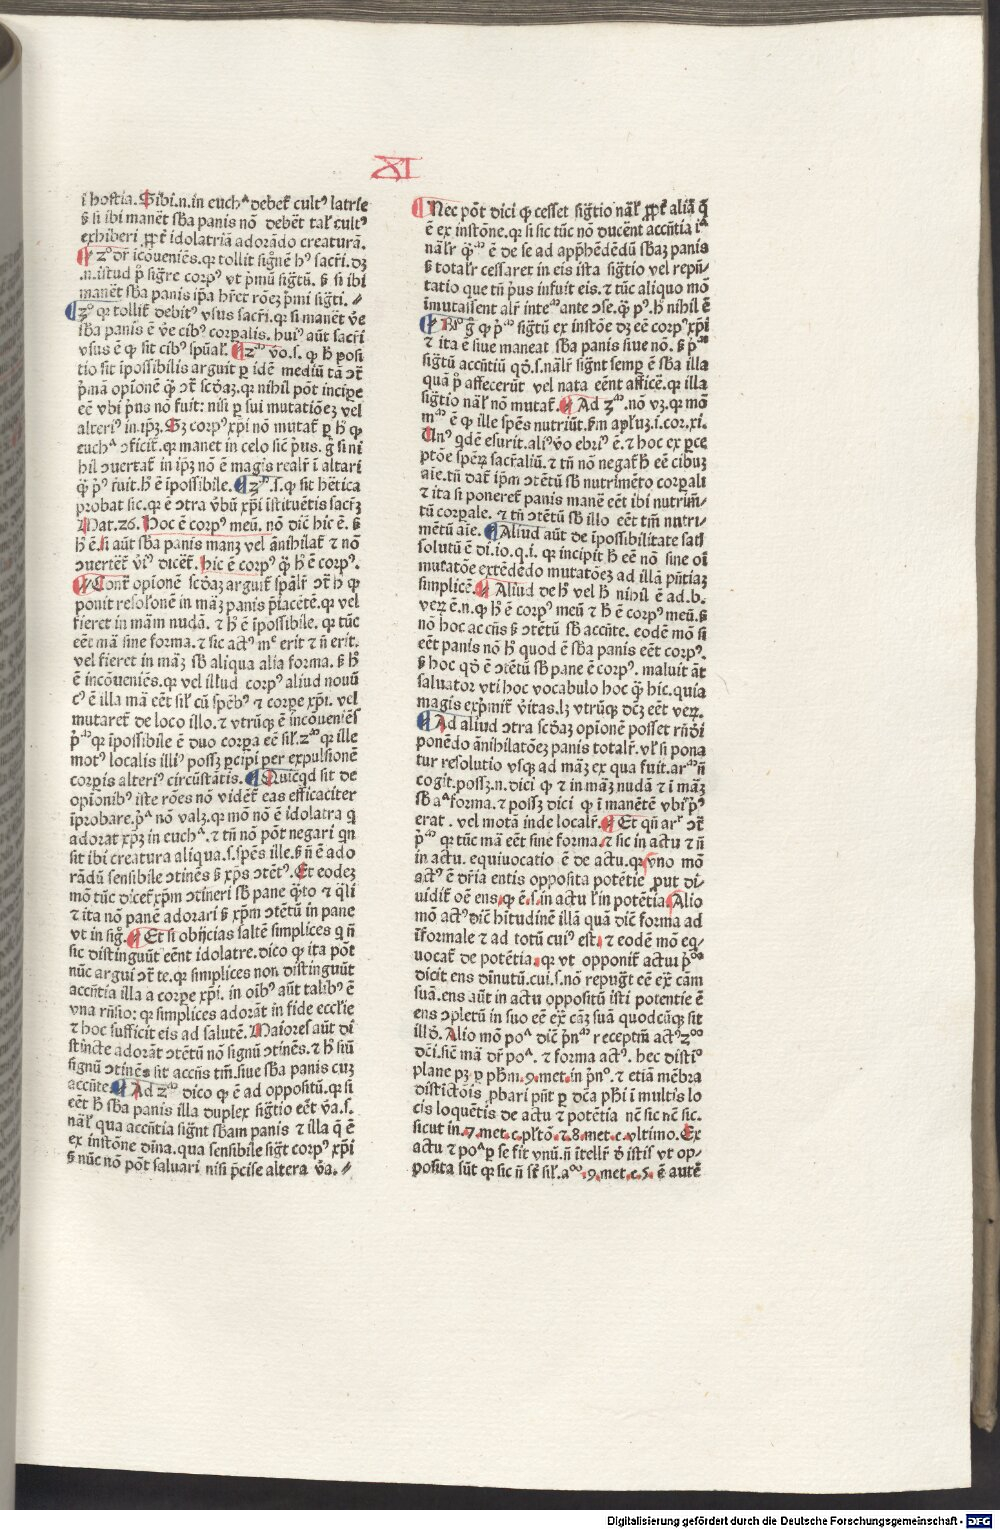 XI
ī hostia. Sibi.n.in euchᵃ debet̄ cultꝰ latrie
ꝫ si ibi manēt sb̄a panis nō debēt tal̄ cultꝰ
exhiberi ꝓpt̄ idolatriā adorādo creaturā.
¶ 2º dr̄ īcōueniēs.qꝛ tollit signū hꝰ sacr̄i.dꝫ
.n.istud pº sigr̄e corpꝰ vt pͥmū sigtū. ꝫ si ibi
manēt sb̄a panis ip̄a hr̄et rōeꝫ pͥmi sigti.
¶ 2º qꝛ tollit̄ debitꝰ vsus sacr̄i.qꝛ si manēt v̄e
sb̄a panis ē v̄e cibꝰ corpalis. huiꝰ aūt sacr̄i
vsus ē ꝙ sit cibꝰ spūał. ¶ 2º v̄o.s. ꝙ h̄ posi
tio sit īpossibilis arguit ꝑ idē mediū tā ↄt̄
pͥmā opionē q̄ ↄt̄ scd̄aꝫ.qꝛ nihil pōt incipe
eē vbi pͥns nō fuit: nisi ꝑ sui mutatiōeꝫ vel
alteriꝰ in.ip̄ꝫ. Sꝫ corpꝰ xp̄i nō mutat̄ ꝑ h̄ ꝙ
euchᵃ ↄficit̄.qꝛ manet in celo sic̄ pͥus. gͦ si ni
hil ↄuertat̄ in ip̄ꝫ nō ē magis realr̄ ī altari
q̄ pͥꝰ fuit.h̄ ē īpossibile. ¶ 2º.s.ꝙ sit hētica
probat sic.qꝛ ē ↄtra v̄bū xp̄i īstituētis sacr̄ꝫ
Mat.26. Hoc ē corpꝰ meū. nō dic̄ hic ē. ꝫ
h̄ ē. si aūt sb̄a panis manꝫ vel ānihilat̄ ⁊ nō
ↄuertēt̄ v̄iꝰ dicēt̄. hic ē corpꝰ q̄ h̄ ē corpꝰ.
¶ Cont̄ opionē scd̄aꝫ arguit̄ spālr̄ ↄt̄ h̄ ꝙ
ponit resolōnē in māꝫ panis p̄iacētē.qꝛ vel
fieret in mām nudā. ⁊ h̄ ē īpossibile. qꝛ tūc
eēt mā sine forma. ⁊ sic actꝰ mᶜ erit ⁊ n̄ erit.
vel fieret in māꝫ sb̄ aliqua alia forma. ꝫ h̄
ē incōueniēs.qꝛ vel illud corpꝰ aliud nouū
cꝰ ē illa mā eēt sił cū spēbꝰ ⁊ corpe xp̄i. vel
mutaret̄ de loco illo. ⁊ vtrūqꝫ ē incōueniēs
pͥᵐ qꝛ īpossibile ē duo corpa eē sił. 2ᵐ qꝛ ille
motꝰ localis illiꝰ possꝫ ꝑcipi per expulsionē
corpis alteriꝰ circūstātis. ¶ Quicqd sit de
opionibꝰ iste rōes nō vidēt̄ eas efficaciter
īprobare.pͥᵃ nō valꝫ.qꝛ mō nō ē idolatra q̄
adorat xp̄ꝫ in euchᵃ. ⁊ tn̄ nō pōt negari qn̄
sit ibi creatura aliqua.s.spēs ille.ꝫ n̄ ē ado
rādū sensibile ↄtinēs ꝫ xp̄s ↄtētꝰ. Et eodeꝫ
mō tūc dicet̄ xp̄m ↄtineri sb̄ pane q̄to ⁊ q̄li
⁊ ita nō panē adorari ꝫ xp̄m ↄtētū in pane
vt in sigͦ. ¶ Et si obijcias saltē simplices q̄ n̄
sic distinguūt eēnt idolatre.dico ꝙ ita pōt
nūc argui ↄt̄ te.qꝛ simplices non distinguūt
accn̄tia illa a corpe xp̄i. in oībꝰ aūt talibꝰ ē
vna rn̄sio: qꝛ simplices adorāt in fide eccl̄ie
⁊ hoc sufficit eis ad salutē. Maiores aūt di
stincte adorāt ↄtētū nō signū ↄtinēs. ⁊ h̄ siū
signū ↄtinēs sit accn̄s tm̄.siue sb̄a panis cuꝫ
accn̄te. ¶ Ad 2ᵐ dico ꝙ ē ad oppositū.qꝛ si
eēt h̄ sb̄a panis illa duplex sigtio eēt v̄a.s.
nāł qua accn̄tia signt̄ sb̄am panis ⁊ illa q̄ ē
ex instōne dīna.qua sensibile sigt̄ corpꝰ xp̄i
ꝫ nūc nō pōt saluari nisi pͥcise altera v̄a.
¶ Nec pōt dici ꝙ cesset sigtio nāł ꝓpt̄ aliā q̄
ē ex instōne.qꝛ si sic tūc nō ducent accn̄tia iᵃ
nālr̄ q̄ᵐ ē de se ad app̄hēdēdū sb̄aꝫ panis
ꝫ totalr̄ cessaret in eis ista sigtio vel repū-
tatio que tn̄ pͥus infuit eis. ⁊ tūc aliquo mō
īmutassent alr̄ inteᵐ ante ↄse.q̄ pꝰ. h̄ nihil ē
¶ Rº gͦ ꝙ pͥᵐ sigtū ex instōe dꝫ eē corpꝰ xp̄i
⁊ ita ē siue maneat sb̄a panis siue nō. ꝫ pͥᵐ
sigtū accn̄tiū qd̄.s.nālr̄ signt̄ semꝑ ē sb̄a illa
quā pͥ affecerūt vel nata eēnt afficē.qꝛ illa
sigtio nāł nō mutat̄. ¶ Ad 3ᵐ. nō vꝫ.qꝛ mō
mᵐ ē ꝙ ille spēs nutriūt.s̄m apl̄uꝫ.i.cor.xi.
Unꝰ qdē esurit.aliꝰ v̄o ebriꝰ ē. ⁊ hoc ex ꝑce
ptōe spēꝝ sacr̄aliū. ⁊ tn̄ nō negat̄ h̄ eē cibuꝫ
aīe.tn̄ dat̄ ip̄m ↄtētū sb̄ nutrimēto corpali
⁊ ita si poneret̄ panis manē eēt ibi nutrim̄-
tū corpale. ⁊ tn̄ ↄtētū sb̄ illo eēt tm̄ nutri-
mētū aīe. ¶ Aliud aūt de īpossibilitate satꝭ
solutū ē di.10.q.i. qꝛ incipit h̄ eē nō sine oī
mutatōe extēdēdo mutatōeꝫ ad illā pn̄tiaꝫ
simplicē. ¶ Aliud de h̄ vel h̄ nihil ē ad.b.
veꝝ ē.n.ꝙ h̄ ē corpꝰ meū ⁊ h̄ ē corpꝰ meū.ꝫ
nō hoc accn̄s ꝫ ↄtētū sb̄ accn̄te. eodē mō si
eēt panis nō h̄ quod ē sb̄a panis eēt corpꝰ.
ꝫ hoc qd̄ ē ↄtētū sb̄ pane ē corpꝰ. maluit āt
saluator vti hoc vocabulo hoc q̄ hic. quia
magis exp̄mit̄ v̄itas.lꝫ vtrūqꝫ dc̄ꝫ eēt veꝝ.
¶ Ad aliud ↄtra scd̄aꝫ opionē posset rn̄d̄i
ponēdo ānihilatōeꝫ panis totalr̄. vł si pona
tur resolutio vsqꝫ ad māꝫ ex qua fuit.arᵐ n̄
cogit.possꝫ.n.dici ꝙ ⁊ in māꝫ nudā ⁊ ī māꝫ
sb̄ aᵃ forma. ⁊ possꝫ dici ꝙ ī manētē vbi pͥꝰ
erat . vel motā inde localr̄. ¶ Et qn̄ arꝛ ↄt̄
pͥᵐ qꝛ tūc mā eēt sine forma. ⁊ sic in actu ⁊ n̄
in actu. equiuocatio ē de actu.qꝛ vno mō
actꝰ ē dr̄ia entis opposita potētie ꝓut di-
uidit̄ oē ens.qꝛ ē.s.in actu ł in potētia. Alio
mō actꝰ dic̄ hītudinē illā quā dic̄ forma ad
īformale ⁊ ad totū cuiꝰ est. ⁊ eodē mō eq̄-
uocat̄ de potētia. qꝛ vt opponit̄ actui pͥº
dicit ens dīnutū.cui.s.nō repugt̄ eē ex̄ cām
suā.ens aūt in actu oppositū isti potentie ē
ens ↄpletū in suo eē ex̄ cāꝫ suā quodcūqꝫ sit
illd̄. Alio mō poᵃ dic̄ pͥnᵐ receptiū actꝰ 2º
dc̄i.sic̄ mā dr̄ poᵃ. ⁊ forma actꝰ. hec distiº
plane pꝫ ꝑ ph̄m.9.met.in pͥnº. ⁊ etiā mēbra
distictōis ꝓbari pn̄t ꝑ dc̄a ph̄i ī multis lo
cis loquētis de actu ⁊ potētia nē sic nē sic.
sicut in.7.met.c.pl̄tō.⁊.8.met.c.vltimo. Ex
actu ⁊ poᵃ ꝑ se fit vnū.n̄ ītellr̄ d̄ istis vt op-
posita sūt qꝛ sic n̄ st̄ sił.aº.9.met.c.5. ē autē
Digitalisierung gefördert durch die Deutsche Forschungsgemeinschaft - DFG